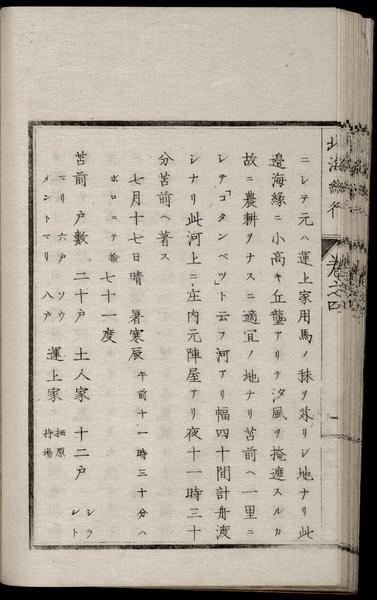 ニシテ元ハ運上家用馬ノ秣ヲ苅リシ地ナリ此
邉海縁ニ小高キ丘壟アリテ汐風ヲ掩遮スルカ
故ニ農耕ヲナスニ適宜ノ地ナリ苫前ヘ一里ニ
シテ「コタンベツ」ト云フ河アリ幅四十間計舟渡
シナリ此河上ニ庄内元陣屋アリ夜十一時三十
分苫前ヘ著ス
七月十七日晴 暑寒辰 午前十一時三十分ハ
ボロニテ験 七十一度
苫前 戸數 二十戸 土人家 十二戸 シラ シト
マリ 六戸 ソウ
メントマリ 八戸 運上家 栖原 持場
北海紀行 巻之四 一